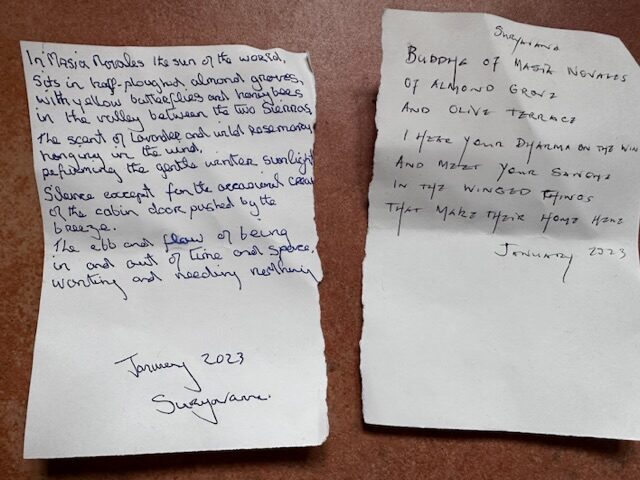 In Masia Novales the sun of the world,
Sits in half-ploughed almond groves,
With yellow butterflies and honey bees
in the valley between the two Sierras
The scent of lavender and wild rosemary
hanging in the wind.
perfuming the gentle winter sunlight
Silence except for the occasional creak
of the cabin door pushed by the
breeze.
The ebb and flow of being
in and out of time and space,
wanting and needing nothing
January 2023
Suryavana.
Suryavana
BUDDHA OF MASIA NOVALES
OF ALMOND GROVE
AND OLIVE TERRACE
I HEAR YOUR DHARMA ON THE WIN
AND MEET YOUR SANGHA
IN THE WINGED THINGS
THAT MAKE THEIR HOME HERE
JANUARY 2023